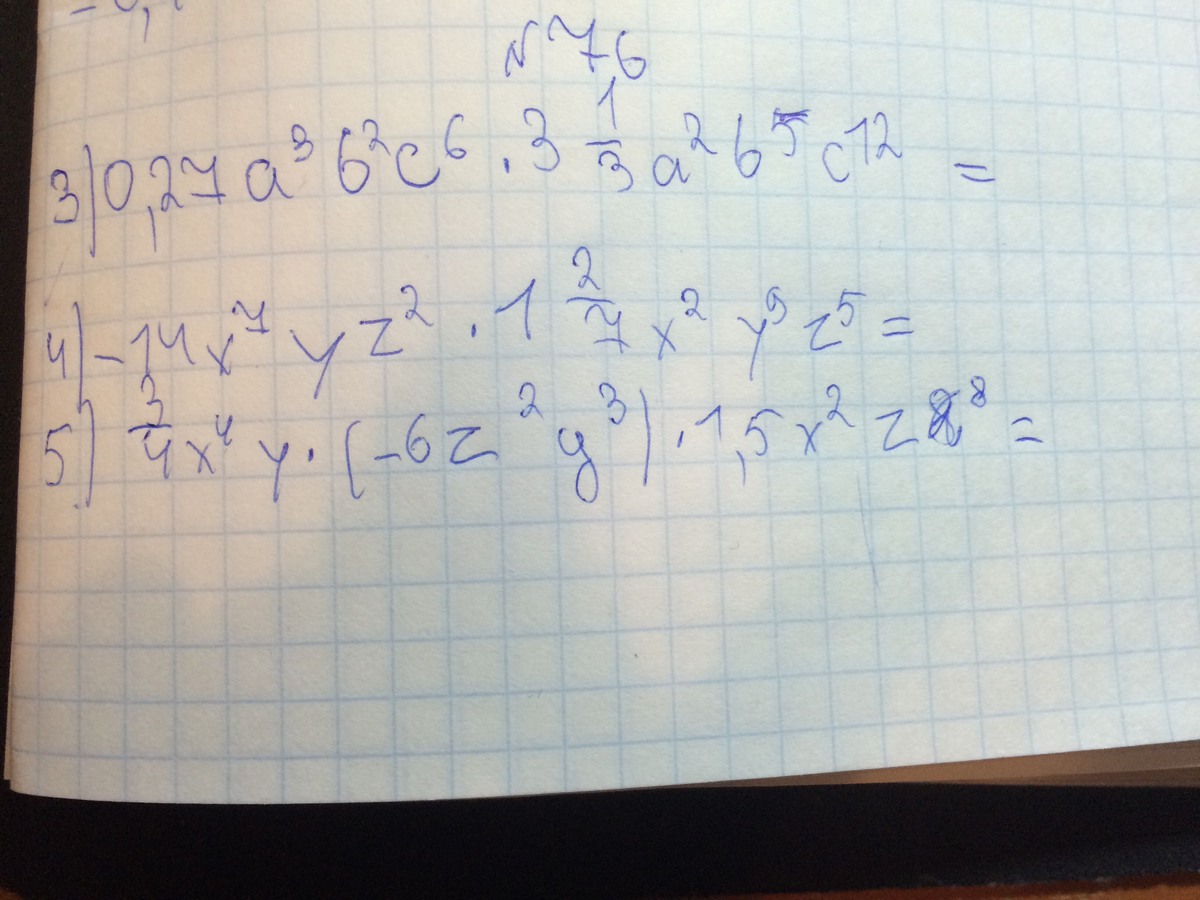 №76
3) 0,27 a³ b² c⁶ · 3 1/3 a² b⁵ c¹² =
4) -14 x⁷ y z² · 1 2/7 x² y⁹ z⁵ =
5) 3/4 x⁴ y · (-6 z² y³) · 1,5 x² z⁸ =